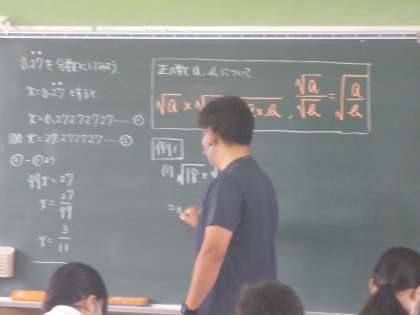 0.2̇7̇を分数にしてみよう
x=0.2̇7̇とすると
x=0.272727……①
100x=27.272727……②
②-①より
99x=27
x=27/99
x=3/11
正の数a,bについて
√a×√ a×b , √a/√b=√(a/b)
例1
(1) √18×√
=